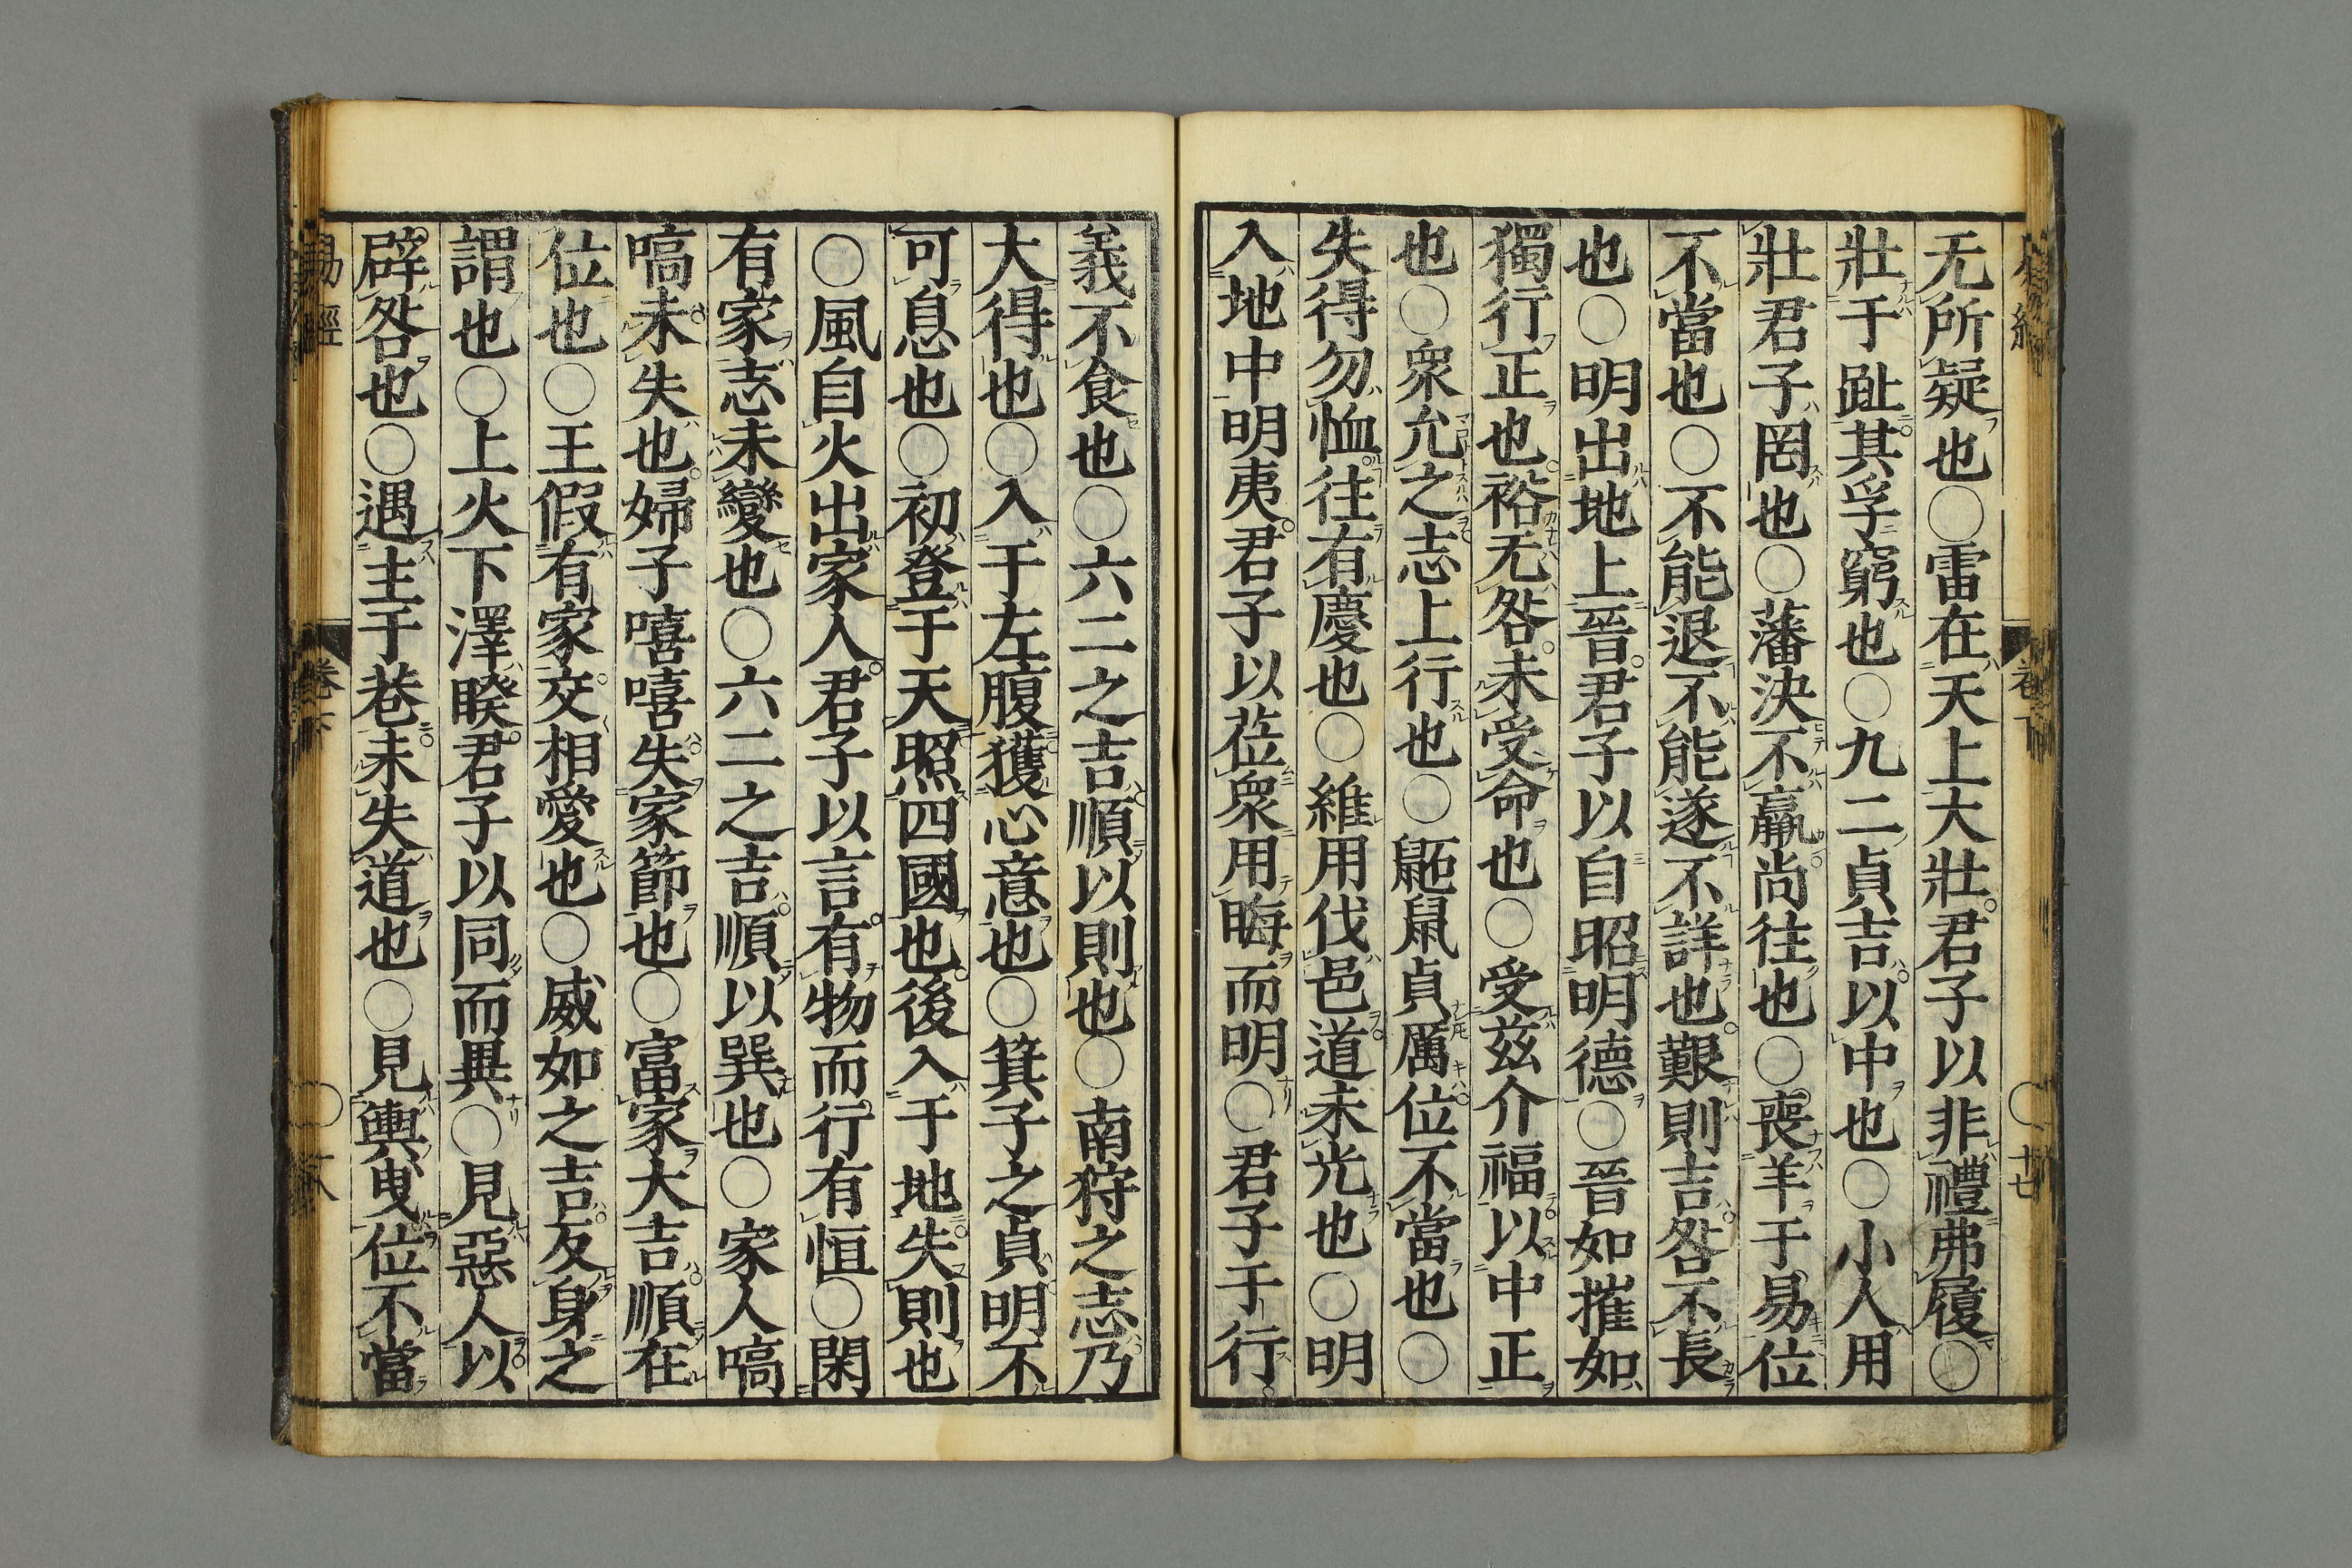 无所疑也○雷在天上大壯君子以非禮弗履○
壯于趾其孚窮也○九二貞吉以中也○小人用
壯君子罔也○藩決不羸尚往也○喪羊于易位
不當也○不能退不能遂不詳也艱則吉咎不長
也○明出地上晉君子以自昭明德○晉如摧如
獨行正也裕无咎未受命也○受茲介福以中正
也○衆允之志上行也○鼫鼠貞厲位不當也○
失得勿恤往有慶也○維用伐邑道未光也○明
入地中明夷君子以莅衆用晦而明○君子于行
義不食也○六二之吉順以則也○南狩之志乃
大得也○入于左腹獲心意也○箕子之貞明不
可息也○初登于天照四國也後入于地失則也
○風自火出家人君子以言有物而行有恒○閑
有家志未變也○六二之吉順以巽也○家人嗃
嗃未失也婦子嘻嘻失家節也○富家大吉順在
位也○王假有家交相愛也○威如之吉反身之
謂也○上火下澤睽君子以同而異○見惡人以
辟咎也○遇主于巷未失道也○見輿曳位不當
易經 卷下 ○十八